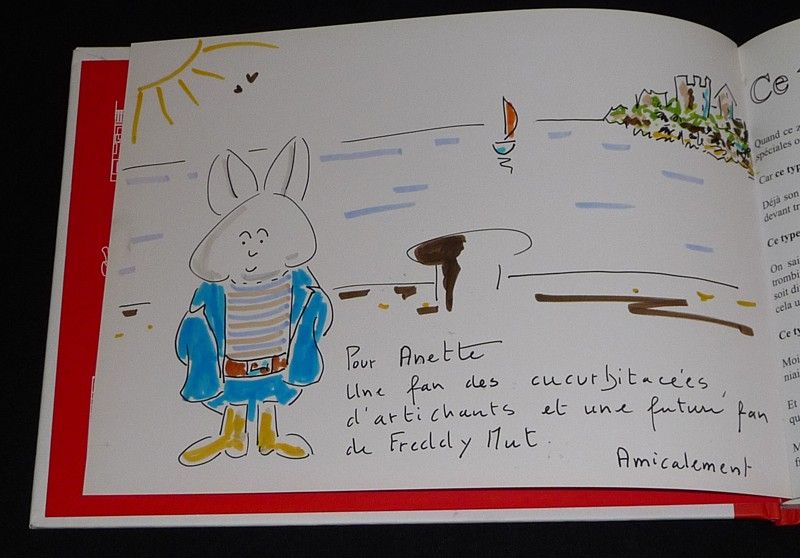 Pour Anette
Une fan des cucurbitacées,
d'artichants et une futur fan
de Freddy Mut.
Amicalement
Ce
Quand ce
spéciales o
Car ce typ
Déjà son
devant tr
Ce type
On sai
trombi
soit di
cela u
Ce ty
Moi
niai
Et
qu
M